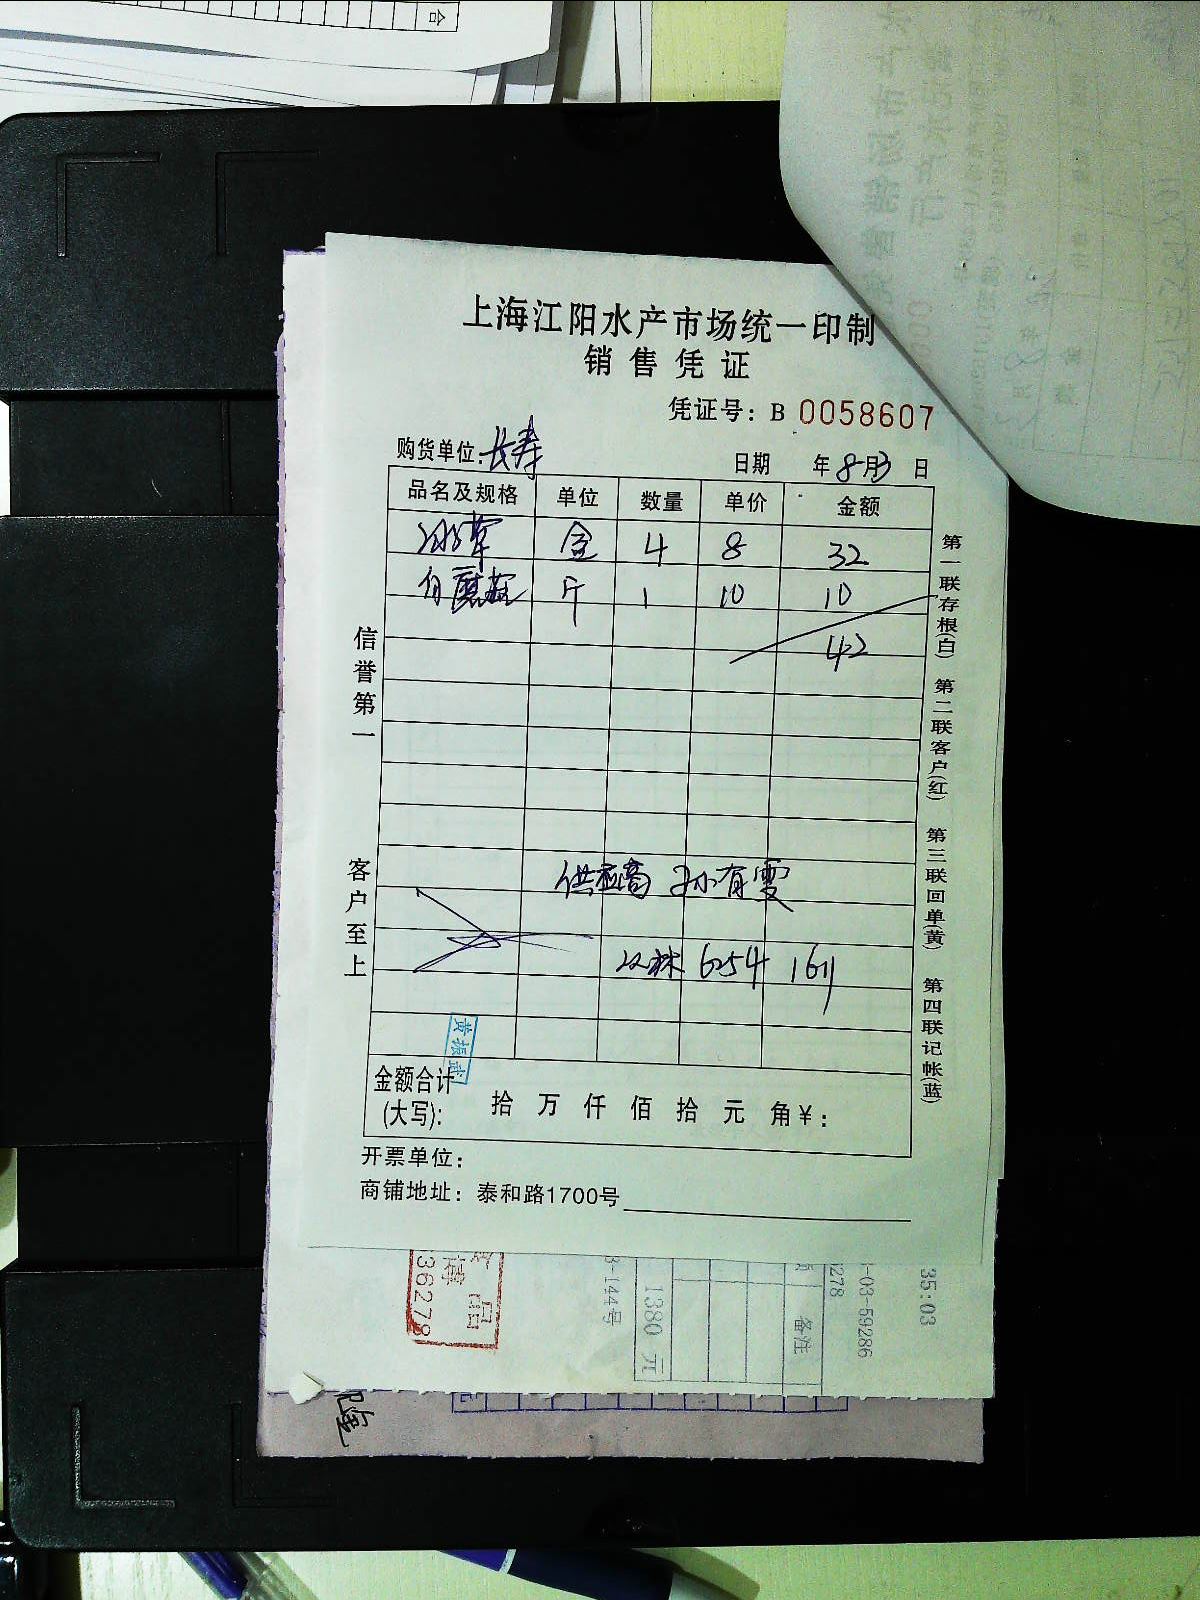 合
上海江阳水产市场统一印制
销售凭证
凭证号：B 0058607
购货单位：长寿 日期 年8月3日
品名及规格 单位 数量 单价 金额
冰草 盒 4 8 32
白蘑菇 斤 1 10 10
42
供应商 孙有雯
6254 1611
黄振武
金额合计
(大写)： 拾 万 仟 佰 拾 元 角 ¥：
开票单位：
商铺地址：泰和路1700号
信誉第一 客户至上
第一联存根(白) 第二联客户(红) 第三联回单(黄) 第四联记帐(蓝)
36278
3-144号
1380 元
备注
0278
-03-59286
35:03